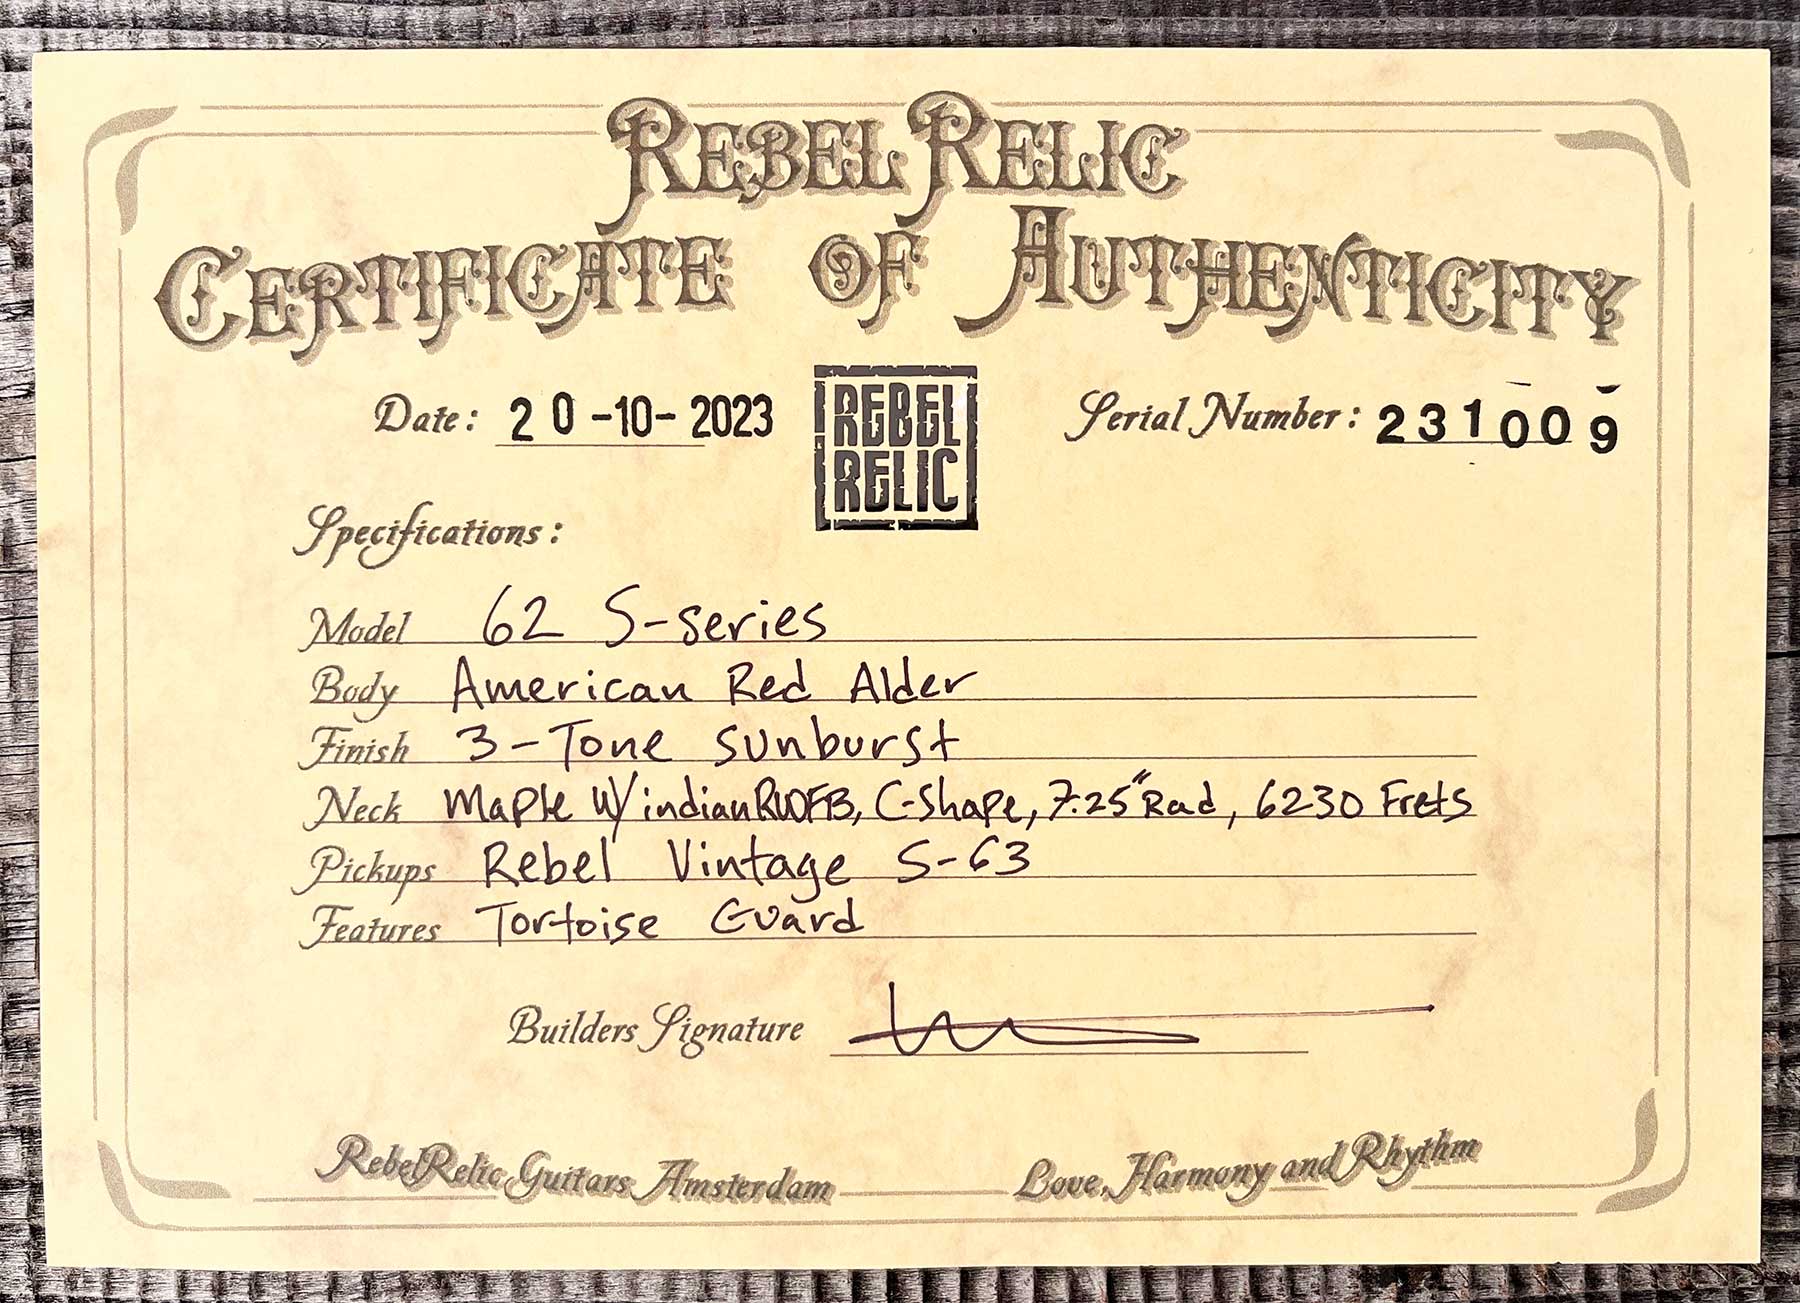 REBEL RELIC
CERTIFICATE OF AUTHENTICITY
Date: 20-10-2023
REBEL
RELIC
Serial Number: 231009
Specifications:
Model 62 S-series
Body American Red Alder
Finish 3-Tone sunburst
Neck Maple W/ indian RWFB, C-Shape, 7.25" Rad, 6230 Frets
Pickups Rebel Vintage S-63
Features Tortoise Guard
Builders Signature
RebelRelic Guitars Amsterdam
Love, Harmony and Rhythm